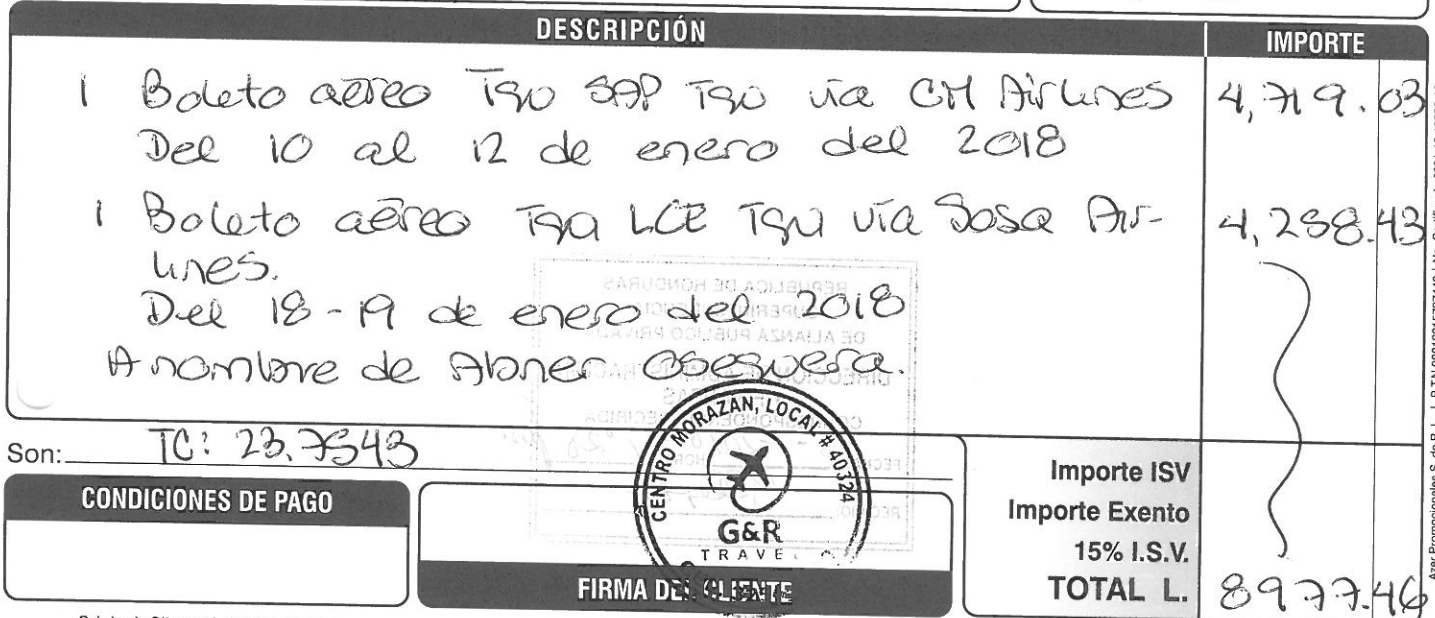 DESCRIPCIÓN IMPORTE
1 Boleto aéreo Tgu SAP Tgu vía CM Airlines 4,719.03
Del 10 al 12 de enero del 2018
1 Boleto aéreo Tgu LCE Tgu vía Sosa Air- 4,258.43
lines.
Del 18-19 de enero del 2018
A nombre de Abner Oseguera.
REPUBLICA DE HONDURAS
DE ALIANZA PUBLICO PRIVADA
CENTRO MORAZAN, LOCAL # 40324
G&R
TRAVEL
Son: TC: 23.7543
CONDICIONES DE PAGO
FIRMA DEL CLIENTE
Importe ISV
Importe Exento
15% I.S.V.
TOTAL L. 8977.46